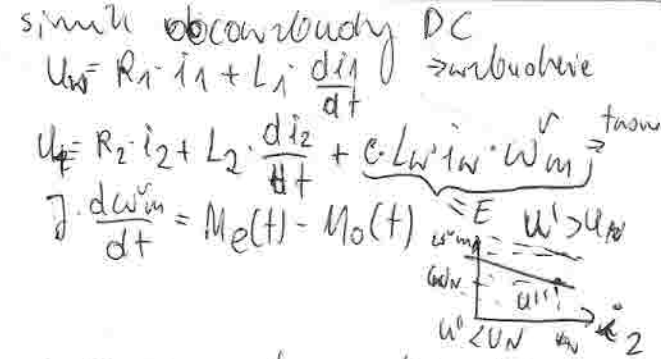 silnik obcowzbudny DC
U_w = R_1 · i_1 + L_1 · di_1/dt → wzbudzenie
U_t = R_2 · i_2 + L_2 · di_2/dt + c · L_w · i_w · ω_m →
= E
J · dω_m/dt = M_e(t) - M_o(t)
U' > U_N
ω_N
U''
U'' < U_N
i_2